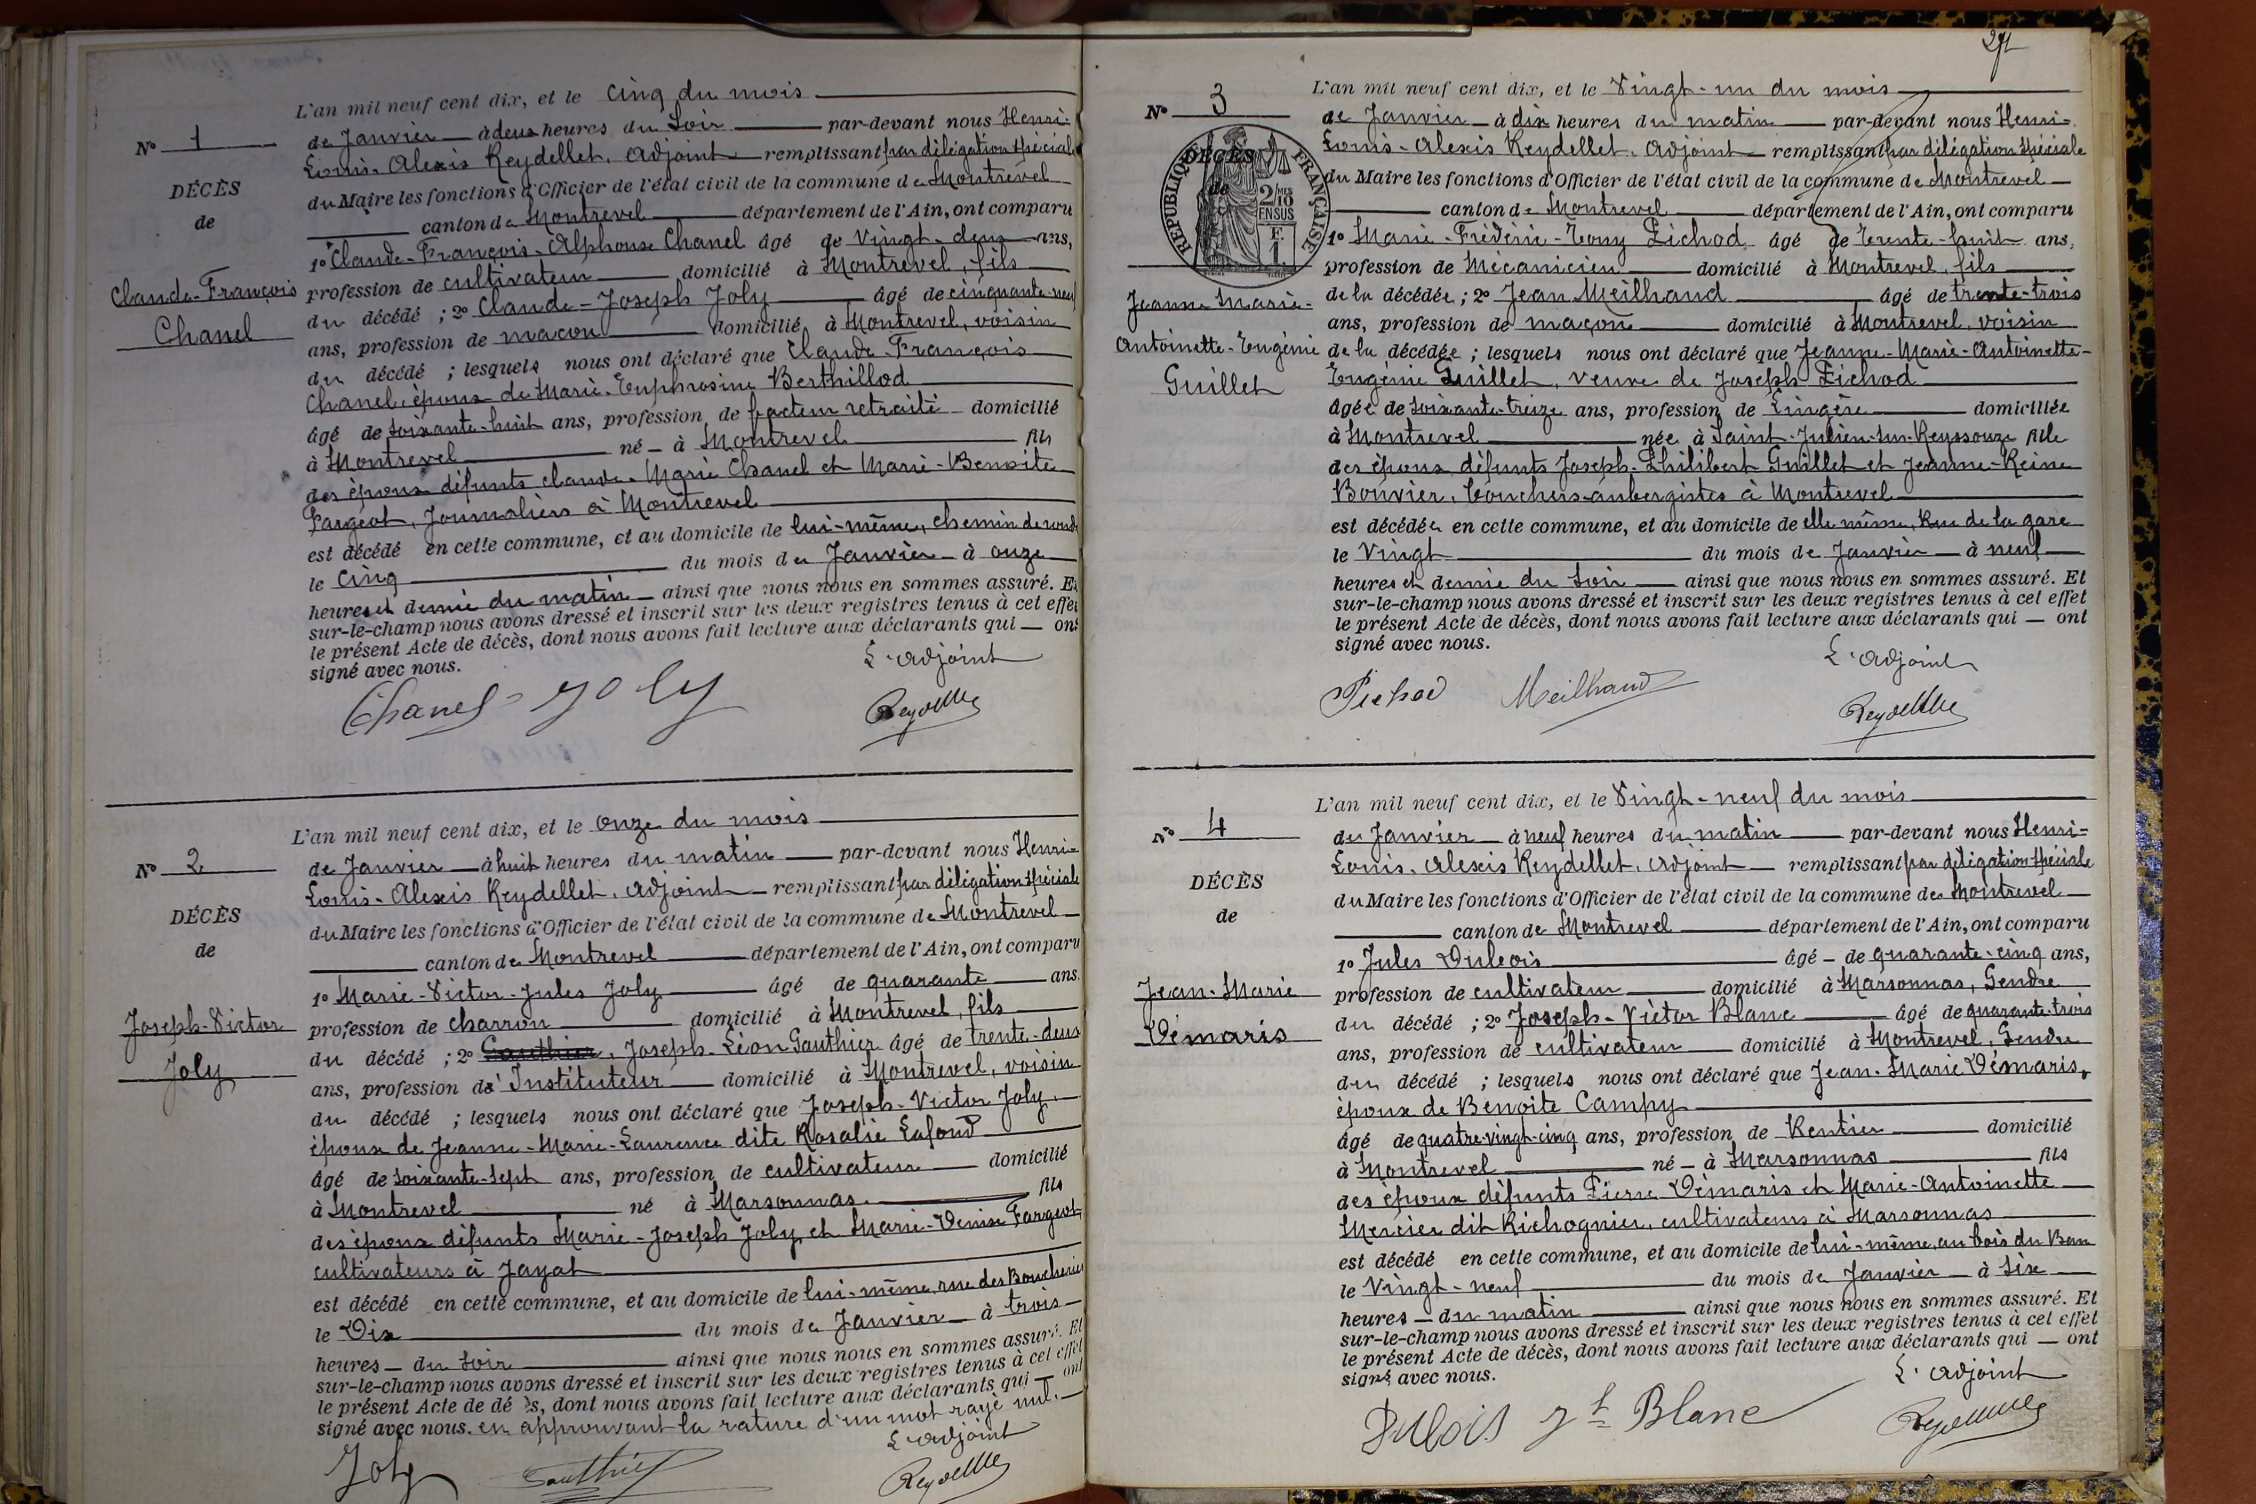 L'an mil neuf cent dix, et le cinq du mois
N° 1
de Janvier à deux heures du soir par-devant nous Henri-
Louis-Alexis Reydellet, Adjoint remplissant par délégation spéciale
DÉCÈS
du Maire les fonctions d'Officier de l'état civil de la commune de Montrevel
de
canton de Montrevel département de l'Ain, ont comparu
1° Claude-François-Alphonse Chanel âgé de vingt-deux ans,
Claude-François
profession de cultivateur domicilié à Montrevel, fils
Chanel
du décédé ; 2° Claude-Joseph Joly âgé de cinquante-neuf
ans, profession de maçon domicilié à Montrevel, voisin
du décédé ; lesquels nous ont déclaré que Claude-François
Chanel, époux de Marie-Euphrosine Berthillod
âgé de soixante-huit ans, profession de facteur retraité domicilié
à Montrevel né à Montrevel fils
des époux défunts Claude-Marie Chanel et Marie-Benoite
Fargeot, Journaliers à Montrevel
est décédé en cette commune, et au domicile de lui-même, chemin de ronde
le cinq du mois de Janvier à onze
heures et demie du matin ainsi que nous nous en sommes assuré. Et
sur-le-champ nous avons dressé et inscrit sur les deux registres tenus à cet effet
le présent Acte de décès, dont nous avons fait lecture aux déclarants qui ont
signé avec nous.
L'adjoint
Chanel Joly Reydellet
L'an mil neuf cent dix, et le onze du mois
N° 2
de Janvier à huit heures du matin par-devant nous Henri-
Louis-Alexis Reydellet, adjoint remplissant par délégation spéciale
DÉCÈS
du Maire les fonctions d'Officier de l'état civil de la commune de Montrevel
de
canton de Montrevel département de l'Ain, ont comparu
1° Marie-Victor-Jules Joly âgé de quarante ans,
Joseph-Victor
profession de charron domicilié à Montrevel, fils
Joly
du décédé ; 2° Gauthier, Joseph-Léon Gauthier âgé de trente-deux
ans, profession d'Instituteur domicilié à Montrevel, voisin
du décédé ; lesquels nous ont déclaré que Joseph-Victor Joly,
époux de Jeanne-Marie-Laurence dite Rosalie Lafond
âgé de soixante-sept ans, profession de cultivateur domicilié
à Montrevel né à Marsonnas fils
des époux défunts Marie-Joseph Joly et Marie-Denise Fargeot,
cultivateurs à Jayat
est décédé en cette commune, et au domicile de lui-même, rue des Boucheries
le Dix du mois de Janvier à trois
heures du soir ainsi que nous nous en sommes assuré. Et
sur-le-champ nous avons dressé et inscrit sur les deux registres tenus à cet effet
le présent Acte de décès, dont nous avons fait lecture aux déclarants qui ont
signé avec nous. en approuvant la rature d'un mot rayé nul.
L'adjoint
Joly Gauthier Reydellet
L'an mil neuf cent dix, et le Vingt-un du mois
N° 3
de Janvier à dix heures du matin par-devant nous Henri-
Louis-Alexis Reydellet, adjoint remplissant par délégation spéciale
DÉCÈS
du Maire les fonctions d'Officier de l'état civil de la commune de Montrevel
de
RÉPUBLIQUE FRANÇAISE
2/10 MES
EN SUS
1 F.
canton de Montrevel département de l'Ain, ont comparu
1° Marie-Frédéric-Tony Pichod âgé de trente-huit ans,
profession de Mécanicien domicilié à Montrevel, fils
Jeanne-Marie-
de la décédée ; 2° Jean Meilhaud âgé de trente-trois
ans, profession de maçon domicilié à Montrevel, voisin
Antoinette-Eugénie
de la décédée ; lesquels nous ont déclaré que Jeanne-Marie-Antoinette-
Guillet
Eugénie Guillet, veuve de Joseph Pichod
âgée de soixante-treize ans, profession de Lingère domiciliée
à Montrevel née à Saint-Julien-sur-Reyssouze fille
des époux défunts Joseph-Philibert Guillet et Jeanne-Reine
Bouvier, bouchers-aubergistes à Montrevel
est décédée en cette commune, et au domicile de elle même, Rue de la gare
le Vingt du mois de Janvier à neuf
heures et demie du soir ainsi que nous nous en sommes assuré. Et
sur-le-champ nous avons dressé et inscrit sur les deux registres tenus à cet effet
le présent Acte de décès, dont nous avons fait lecture aux déclarants qui ont
signé avec nous.
L'adjoint
Pichod Meilhaud Reydellet
L'an mil neuf cent dix, et le Vingt-neuf du mois
N° 4
de Janvier à neuf heures du matin par-devant nous Henri-
Louis-Alexis Reydellet, adjoint remplissant par délégation spéciale
DÉCÈS
du Maire les fonctions d'Officier de l'état civil de la commune de Montrevel
de
canton de Montrevel département de l'Ain, ont comparu
1° Jules Dubois âgé de quarante-cinq ans,
Jean-Marie
profession de cultivateur domicilié à Marsonnas, Gendre
Démaris
du décédé ; 2° Joseph-Victor Blanc âgé de quarante-trois
ans, profession de cultivateur domicilié à Montrevel, Gendre
du décédé ; lesquels nous ont déclaré que Jean-Marie Démaris,
époux de Benoite Campy
âgé de quatre-vingt-cinq ans, profession de Rentier domicilié
à Montrevel né à Marsonnas fils
des époux défunts Pierre Démaris et Marie-Antoinette
Mercier dit Richognier, cultivateurs à Marsonnas
est décédé en cette commune, et au domicile de lui-même, au bois du Ban
le Vingt-neuf du mois de Janvier à six
heures du matin ainsi que nous nous en sommes assuré. Et
sur-le-champ nous avons dressé et inscrit sur les deux registres tenus à cet effet
le présent Acte de décès, dont nous avons fait lecture aux déclarants qui ont
signé avec nous.
L'adjoint
Dubois Jh Blanc Reydellet